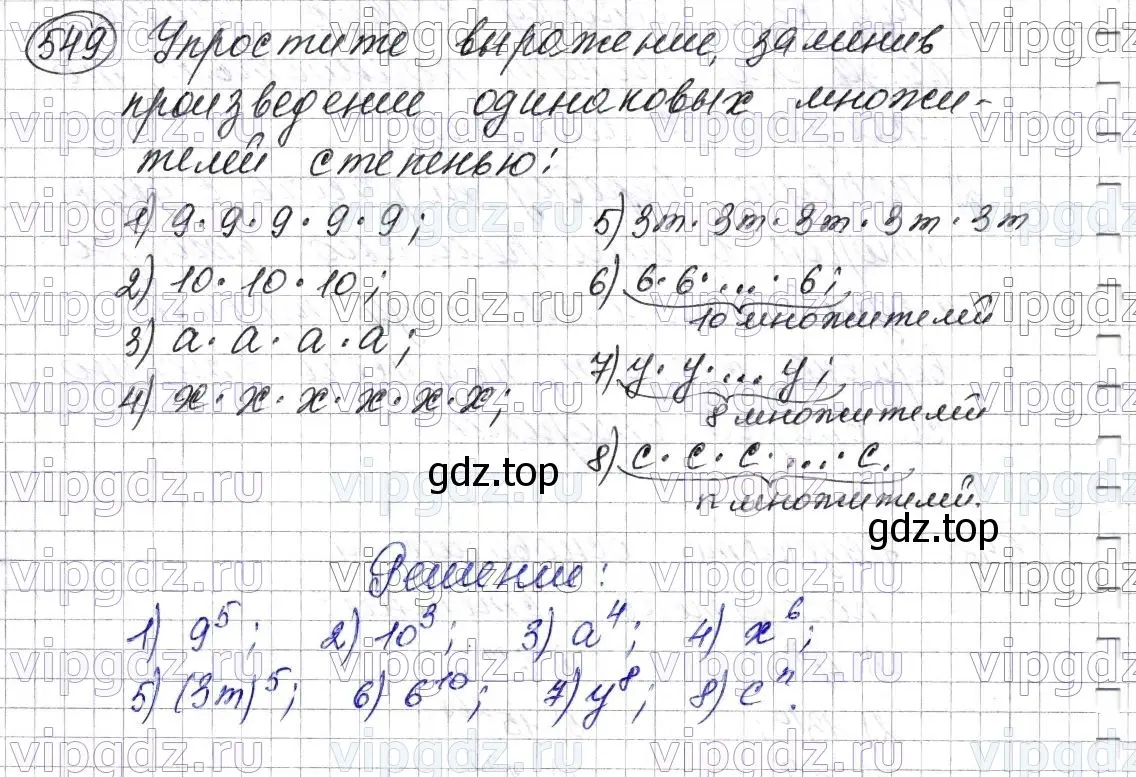 549 Упростите выражение, заменив
произведение одинаковых множи-
телей степенью:
1) 9·9·9·9·9;
2) 10·10·10;
3) a·a·a·a;
4) x·x·x·x·x·x;
5) 3m·3m·3m·3m·3m
6) 6·6·...·6;
10 множителей
7) y·y·...y;
8 множителей
8) c·c·c·...·c.
n множителей.
gdz.top
gdz.top
Решение:
1) 9⁵; 2) 10³; 3) a⁴; 4) x⁶;
5) (3m)⁵; 6) 6¹⁰; 7) y⁸; 8) cⁿ.
vipgdz.ru